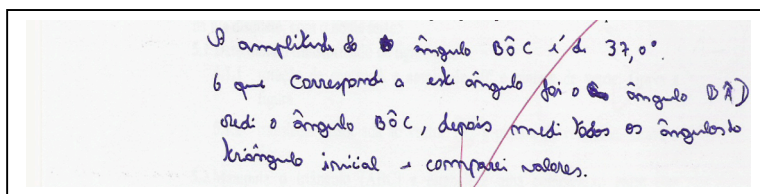 A amplitude do ângulo BÔC é de 37,0°.
O que corresponde a este ângulo foi o ângulo BÂD
Medi o ângulo BÔC, depois medi todos os ângulos do
triângulo inicial e comparei valores.